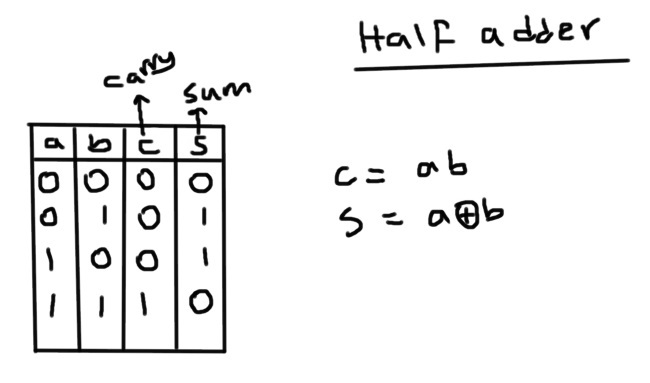 Half adder
carry
sum
a b c s
0 0 0 0
0 1 0 1
1 0 0 1
1 1 1 0
c = ab
s = a⊕b